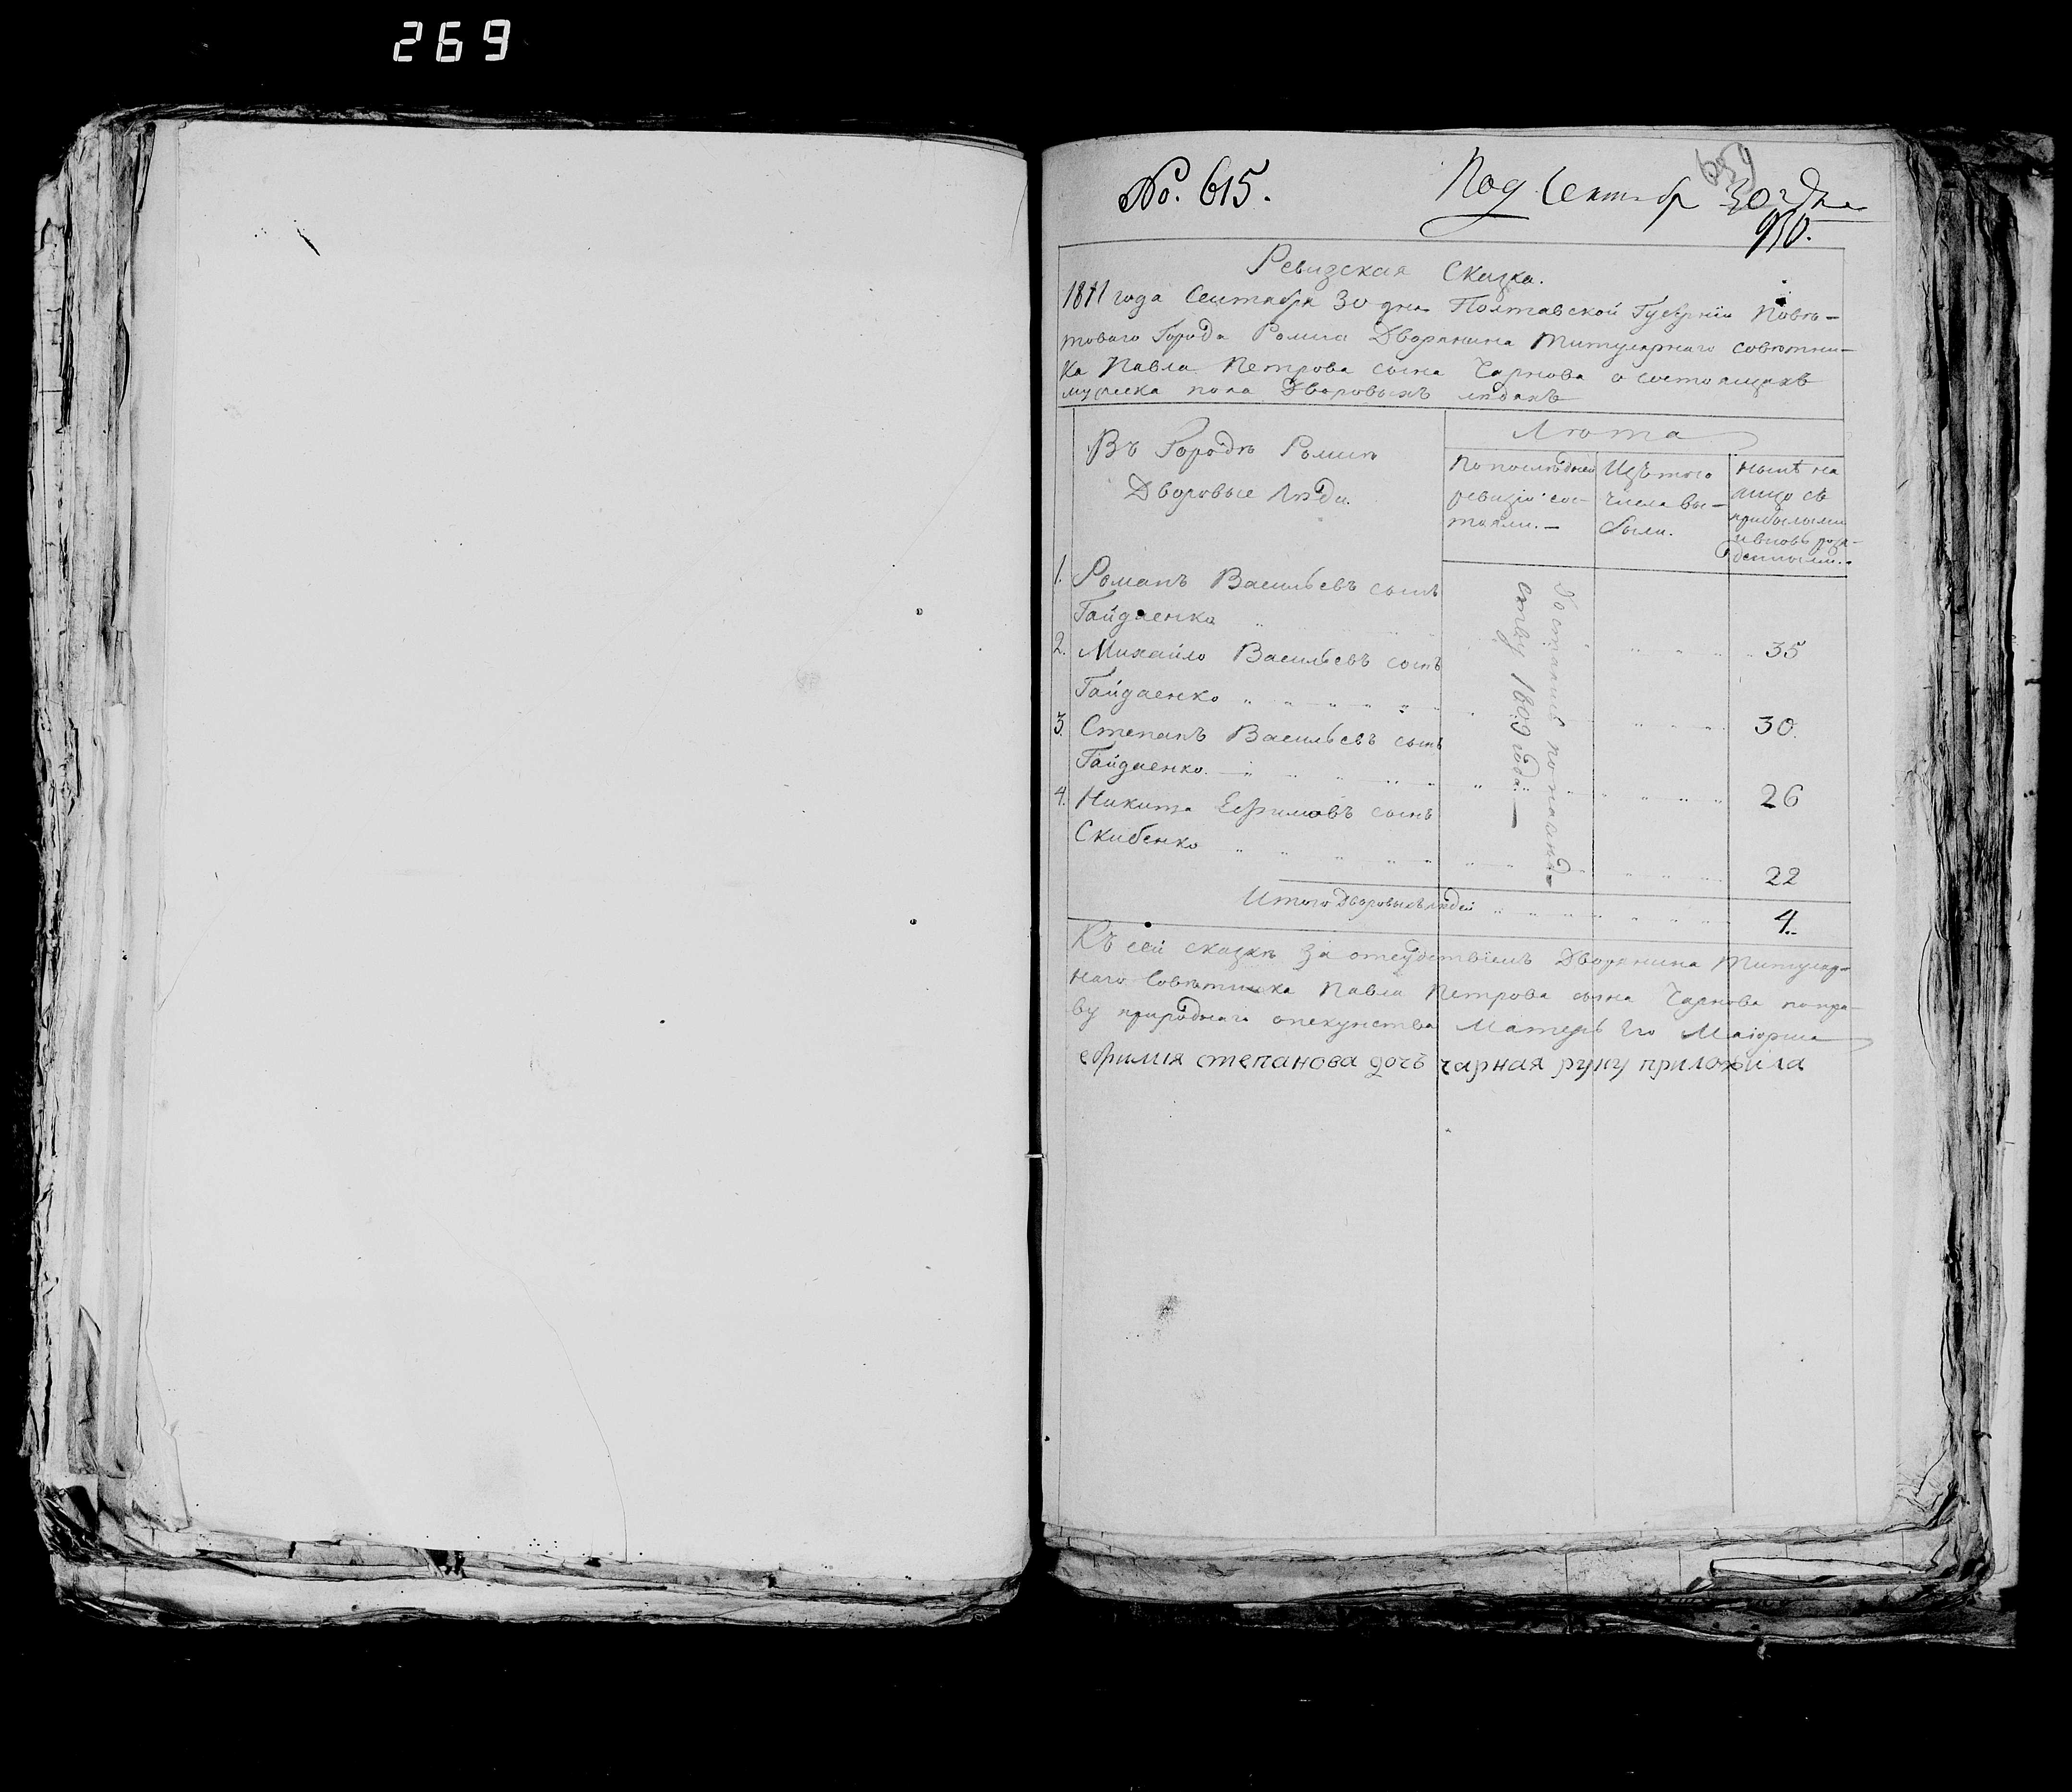 269
№. 615.
Под Сентябр 30 г Дня
659
950.
Ревизская Сказка.
1811 года Сентября 30 дня Полтавской Губернiи Повѣ-
товаго Города Ромна Дворянина Титулярнаго совѣтни-
ка Павла Петрова сына Чарнова о состоящихъ
мужеска пола Дворовыхъ людяхъ
Въ Городѣ Ромнѣ
Дворовые Люди.
Лѣта
По послѣдней
ревизiи сос-
тояли. —
Изъ того
числа вы-
были.
Нынѣ на
лицо съ
прибылыми
и вновь рож-
денными.
1. Романъ Васильевъ сынъ
Гайдаенко 35
2. Михайло Васильевъ сынъ
Гайдаенко 30.
3. Степанъ Васильевъ сынъ
Гайдаенко. 26
4. Никита Ефимовъ сынъ
Скибенко 22
Достался по наслѣд-
ству 1809 года. —
Итого Дворовыхъ людей 4.
Къ сей сказкѣ за отсудствiемъ Дворянина Титуляр-
наго Совѣтника Павла Петрова сына Чарнова по пра-
ву природнаго опекунства Матерь Его Маiорша
ефимiя степанова дочъ чарная руку приложила